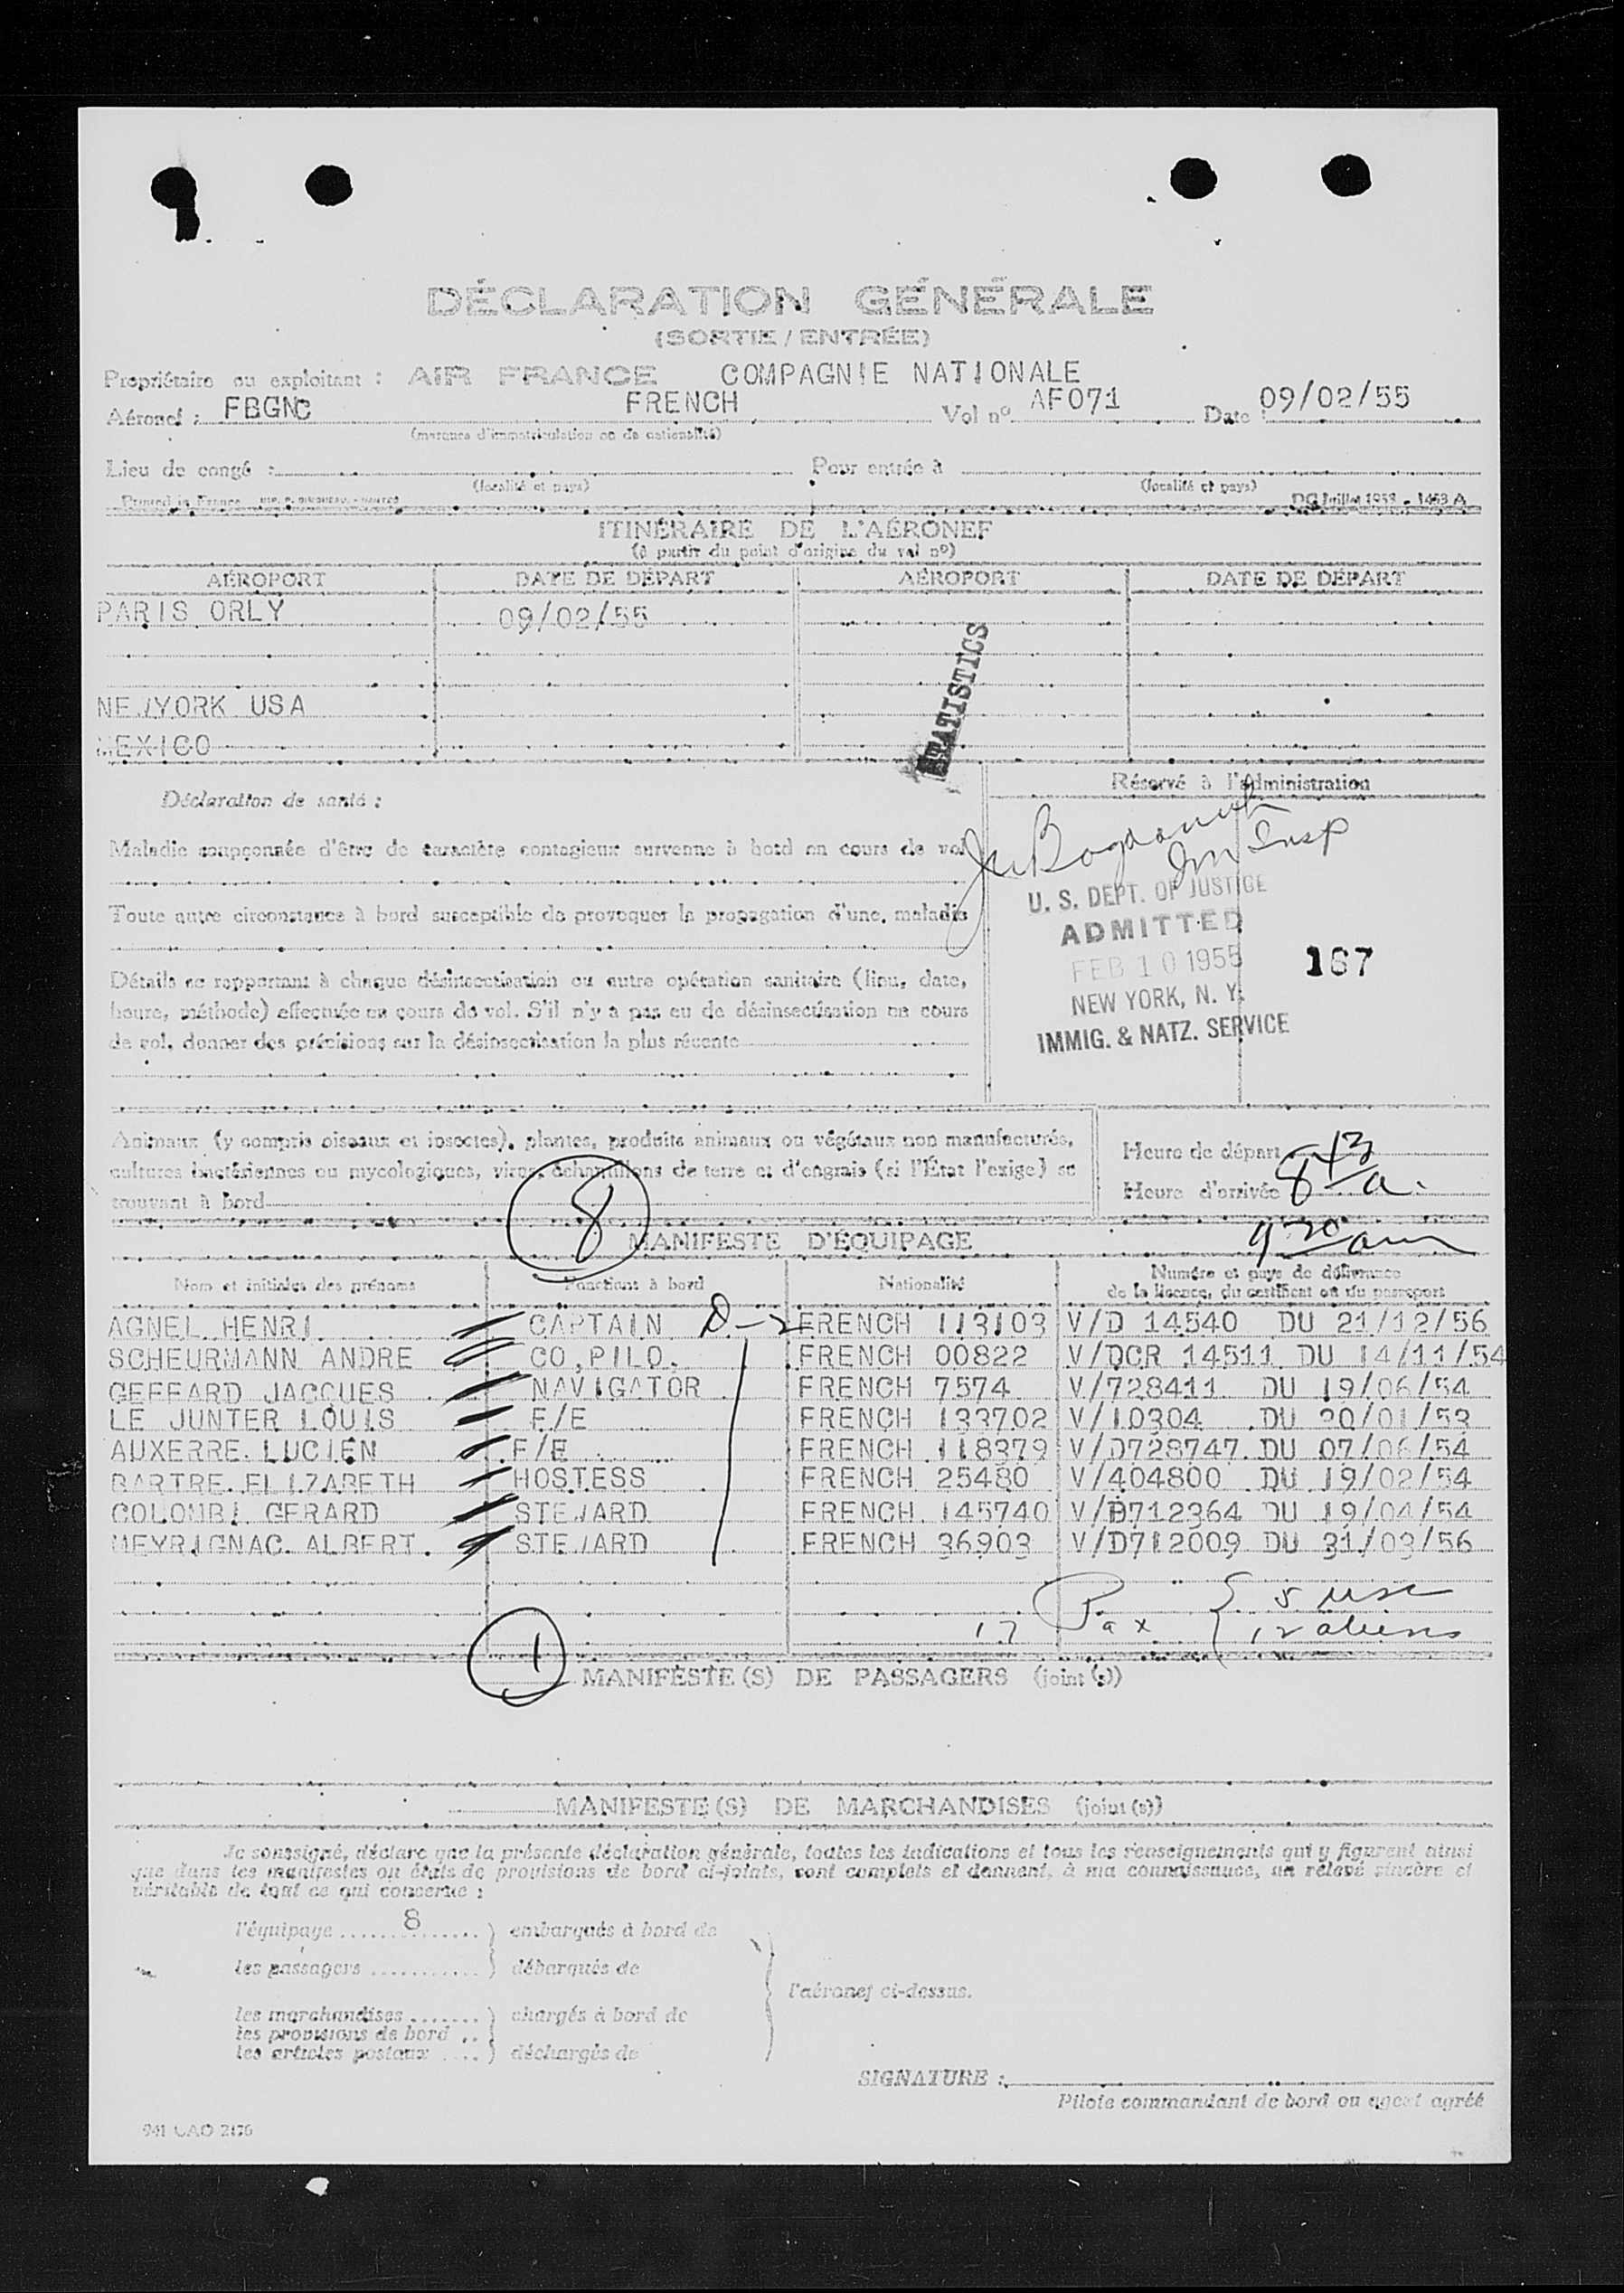 DÉCLARATION GÉNÉRALE
(SORTIE / ENTRÉE)
Propriétaire ou exploitant : AIR FRANCE COMPAGNIE NATIONALE
Aéronef : FBGNC FRENCH Vol nº AF071 Date : 09/02/55
(marques d'immatriculation ou de nationalité)
Lieu de congé : Pour entrée à
(localité et pays) (localité et pays)
Printed in France DG Juillet 1953 - 1463 A
ITINÉRAIRE DE L'AÉRONEF
(à partir du point d'origine du vol nº)
AÉROPORT DATE DE DÉPART AÉROPORT DATE DE DÉPART
PARIS ORLY 09/02/55
STATISTICS
NEWYORK USA
MEXICO
Réservé à l'administration
Déclaration de santé :
Maladie soupçonnée d'être de caractère contagieux survenue à bord en cours de vol
Bogdanovich
Im Insp
Toute autre circonstance à bord susceptible de provoquer la propagation d'une maladie
U. S. DEPT. OF JUSTICE
ADMITTED
FEB 10 1955
NEW YORK, N. Y.
IMMIG. & NATZ. SERVICE
167
Détails se rapportant à chaque désinsectisation ou autre opération sanitaire (lieu, date,
heure, méthode) effectuée en cours de vol. S'il n'y a pas eu de désinsectisation en cours
de vol, donner des précisions sur la désinsectisation la plus récente
Animaux (y compris oiseaux et insectes), plantes, produits animaux ou végétaux non manufacturés,
cultures bactériennes ou mycologiques, virus, échantillons de terre et d'engrais (si l'État l'exige) se
trouvant à bord
Heure de départ
Heure d'arrivée 8 43 a.
9 20 am
8
MANIFESTE D'ÉQUIPAGE
Nom et initiales des prénoms Fonctions à bord Nationalité Numéro et pays de délivrance
de la licence, du certificat ou du passeport
AGNEL HENRI CAPTAIN D-2 FRENCH 113103 V/D 14540 DU 21/12/56
SCHEURMANN ANDRE CO.PILO. FRENCH 00822 V/DCR 14511 DU 14/11/54
GEFFARD JACQUES NAVIGATOR FRENCH 7574 V/728411 DU 19/06/54
LE JUNTER LOUIS F/E FRENCH 133702 V/10304 DU 20/01/53
AUXERRE LUCIEN F/E FRENCH 118379 V/D728747 DU 07/06/54
BARTRE ELIZABETH HOSTESS FRENCH 25480 V/404800 DU 19/02/54
COLOMBI GERARD STEWARD FRENCH 145740 V/D712364 DU 19/04/54
MEYRIGNAC ALBERT STEWARD FRENCH 36903 V/D712009 DU 31/03/56
17 Pax { 5 usc
12 aliens
1
MANIFESTE (S) DE PASSAGERS (joint (s))
MANIFESTE (S) DE MARCHANDISES (joint (s))
Je soussigné, déclare que la présente déclaration générale, toutes les indications et tous les renseignements qui y figurent ainsi
que dans les manifestes ou états de provisions de bord ci-joints, sont complets et donnent, à ma connaissance, un relevé sincère et
véritable de tout ce qui concerne :
l'équipage 8 embarqués à bord de
les passagers débarqués de
l'aéronef ci-dessus.
les marchandises chargés à bord de
les provisions de bord
les articles postaux déchargés de
SIGNATURE :
Pilote commandant de bord ou agent agréé